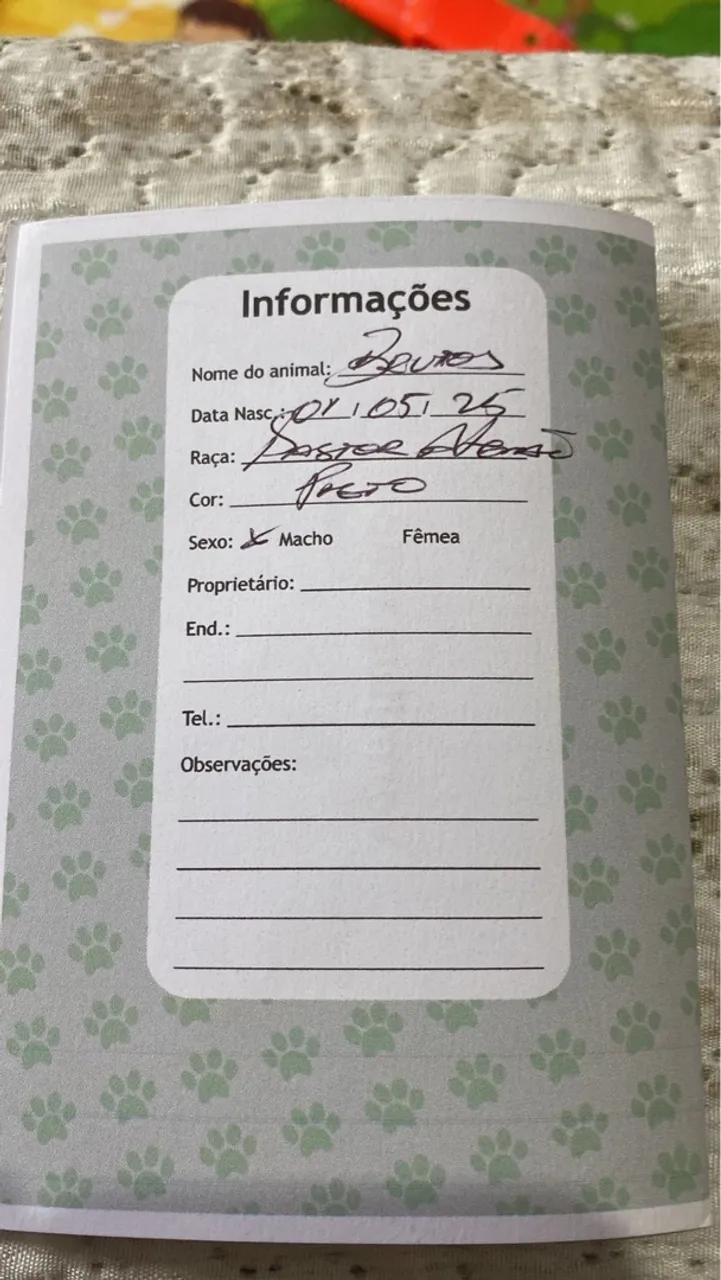 Informações
Nome do animal: Brutos
Data Nasc.: 01/05/25
Raça: Pastor Alemão
Cor: Preto
Sexo: X Macho Fêmea
Proprietário:
End.:
Tel.:
Observações: